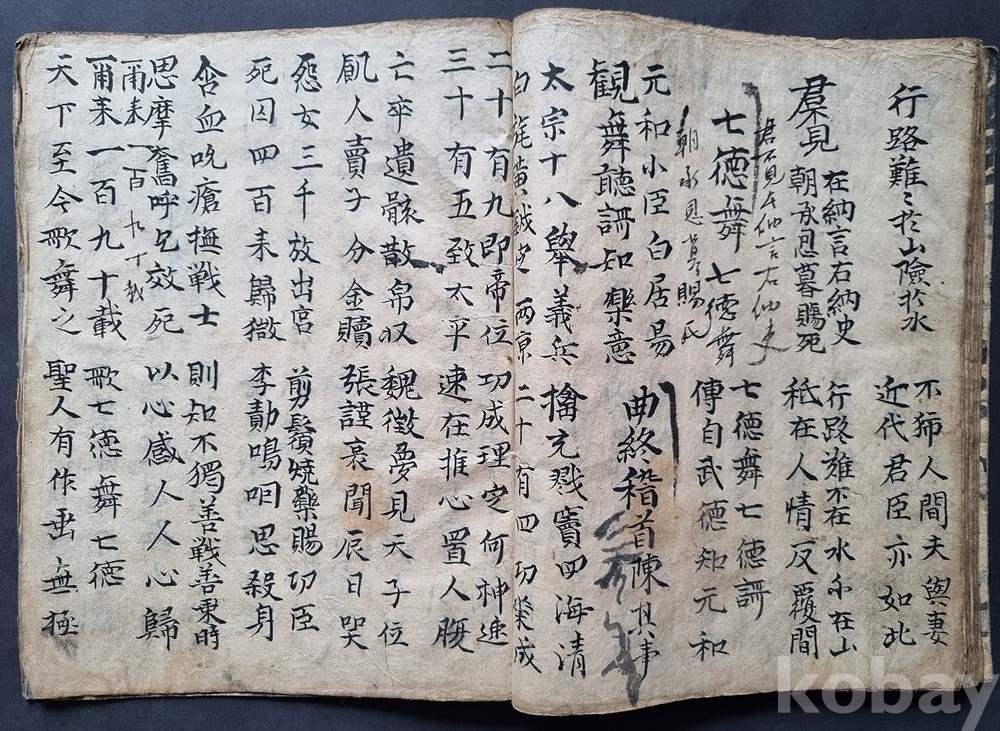 行路難〻於山險於水
不獨人間夫與妻
近代君臣亦如此
羣見
在納言右納史
朝承恩暮賜死
行路難不在水不在山
秪在人情反覆間
君不見左納言右納史
朝承恩暮賜死
七德舞 七德舞
七德舞七德謌
傳自武德知元和
元和小臣白居易
觀舞聽謌知樂意
曲終稽首陳其事
太宗十八舉義兵 擒充戮竇四海清
白旄黃鉞定兩京 二十有四功業成
二十有九即帝位 功成理定何神速
三十有五致太平 速在推心置人腹
亡卒遺骸散帛収 魏徵夢見天子位
飢人賣子分金贖 張謹哀聞辰日哭
怨女三千放出宮 剪鬚燒藥賜功臣
死囚四百来歸獄 李勣鳴咽思殺身
含血吮瘡撫戰士 則知不獨善戰善乘時
思摩奮呼乞效死 以心感人人心歸
爾来一百九十載
爾来一百九十載 歌七德舞七德
天下至今歌舞之 聖人有作垂無極
kobay